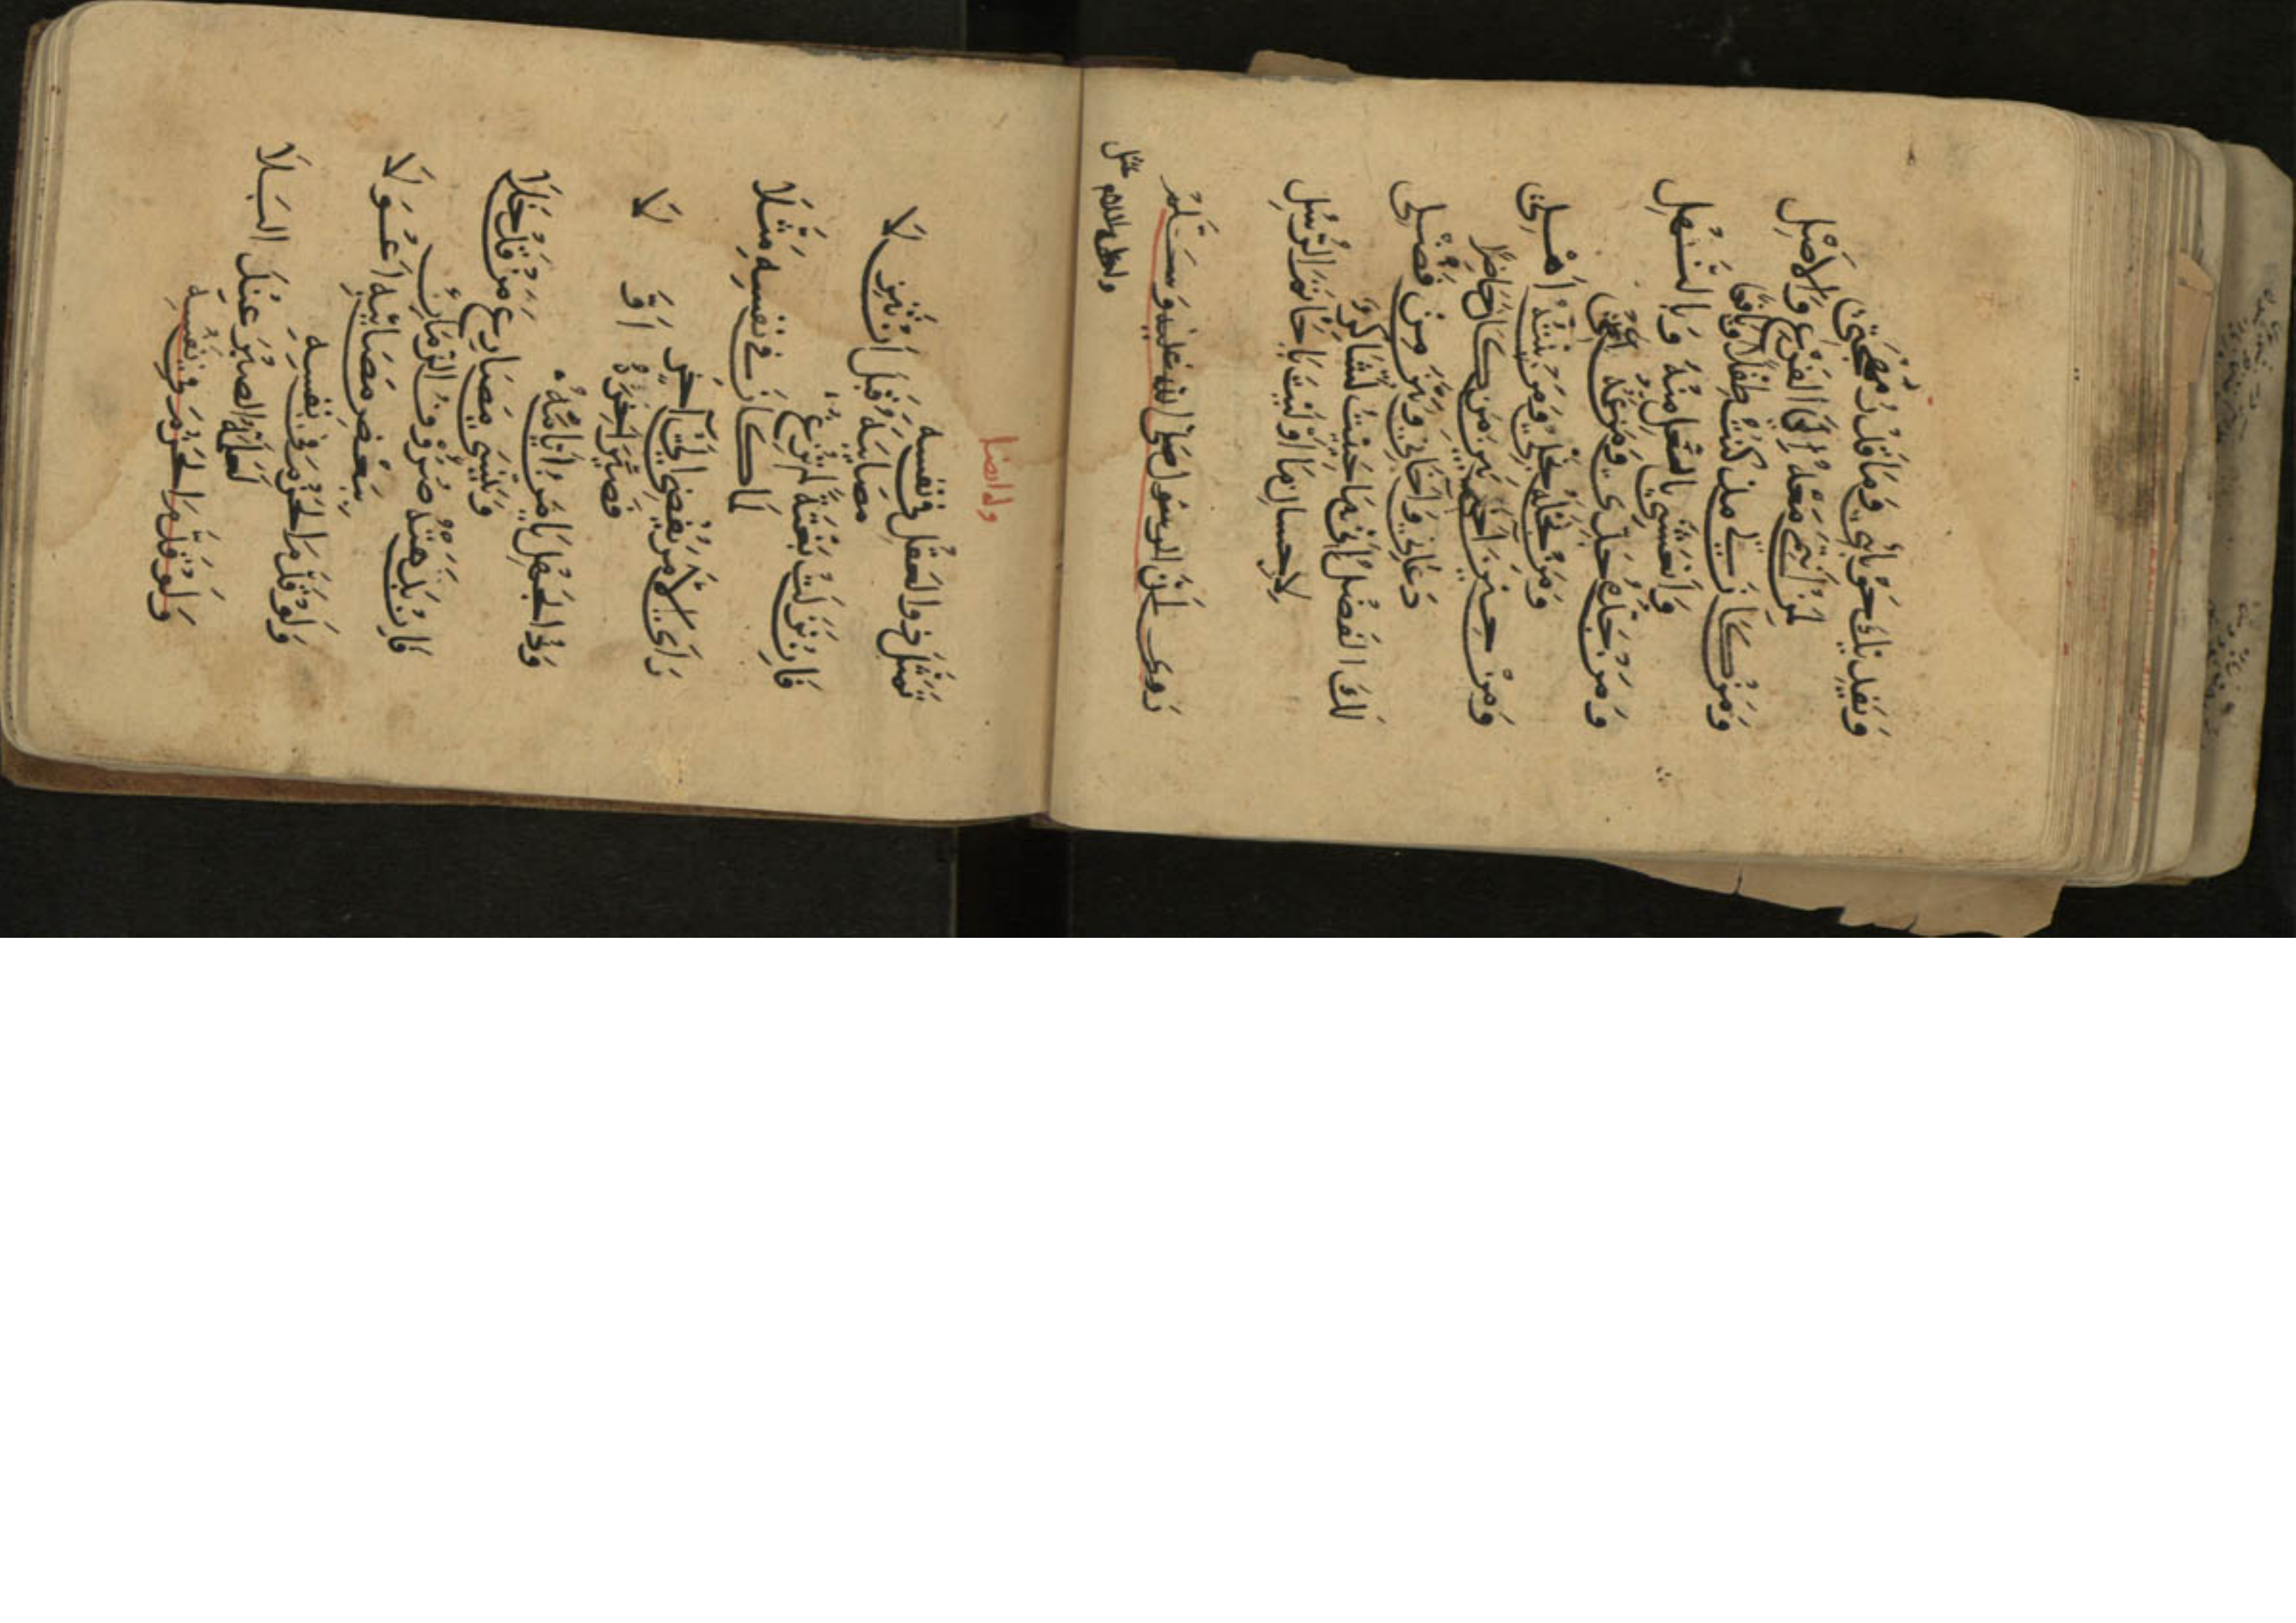 ويفديك حوبائي وما قدر مهجتي
معه الى الفرع والاصل
ومن كان لي مذ كنت طفلا ويافعا
وانعشني بالعل منه وبالنهل
ومن جاهه
ومن نخله نخلي ومن بيته اهلي
ومن حين من كان حاضرا
دعاني واخاني وبين من فضلي
لك الفضل اني ما حييت لشاكر
لاحسان ما اوليت يا خاتم الرسل
الرسول صلى الله عليه وسلم
وله ايضا
يَمثل ذو العقل في نفسه
مصائبه قبل ان تنزلا
فان نزلت بغتة لم ترع
لما كان في نفسه مثلا
راى الامر يفضي الى آخر
فصير آخره اولا
وذو الجهل يامن ايامه
وينسى مصارع من قد خلا
فان بدهته صروف الزمان
ببعض مصائبه اعولا
ولو قدم الحزم في نفسه
لعلمه الصبر عند البلا
ولو قدم الحزم في نفسه